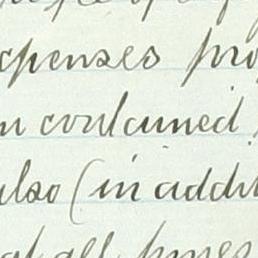 expenses pro
n contained
also (in addit
at all times